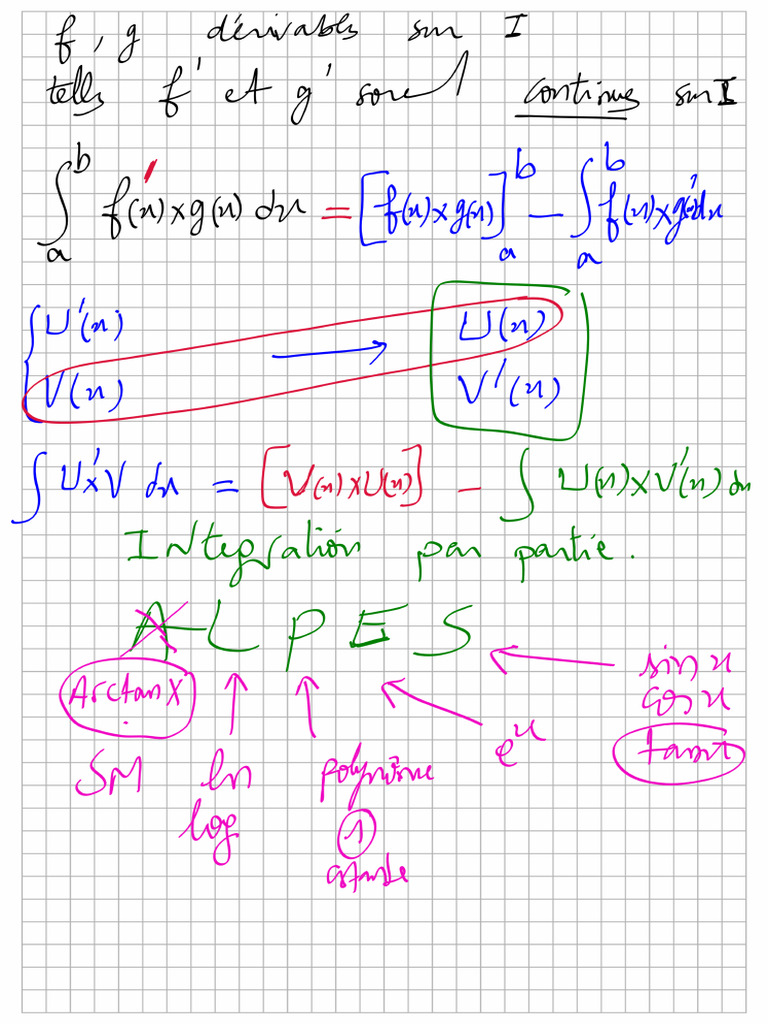 f, g dérivables sur I
tells f' et g' soient continues sur I
∫_a^b f'(x)×g(x) dx = [f(x)×g(x)]_a^b − ∫_a^b f(x)×g'(x)dx
U'(x) → U(x)
V(x) V'(x)
∫ U'×V dx = [V(x)×U(x)] − ∫ U(x)×V'(x) dx
Intégration par partie.
A L P E S
Arctan x
SM
ln
log
polynôme
1
e^x
sin x
cos x
tan x